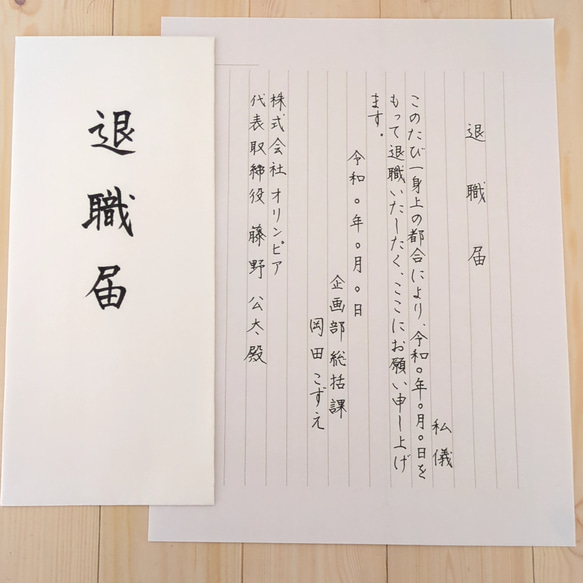 退職届
退職届
私儀
このたび一身上の都合により、令和〇年〇月〇日を
もって退職いたしたく、ここにお願い申し上げ
ます。
令和〇年〇月〇日
企画部総括課
岡田こずえ
株式会社オリンピア
代表取締役 藤野公太殿